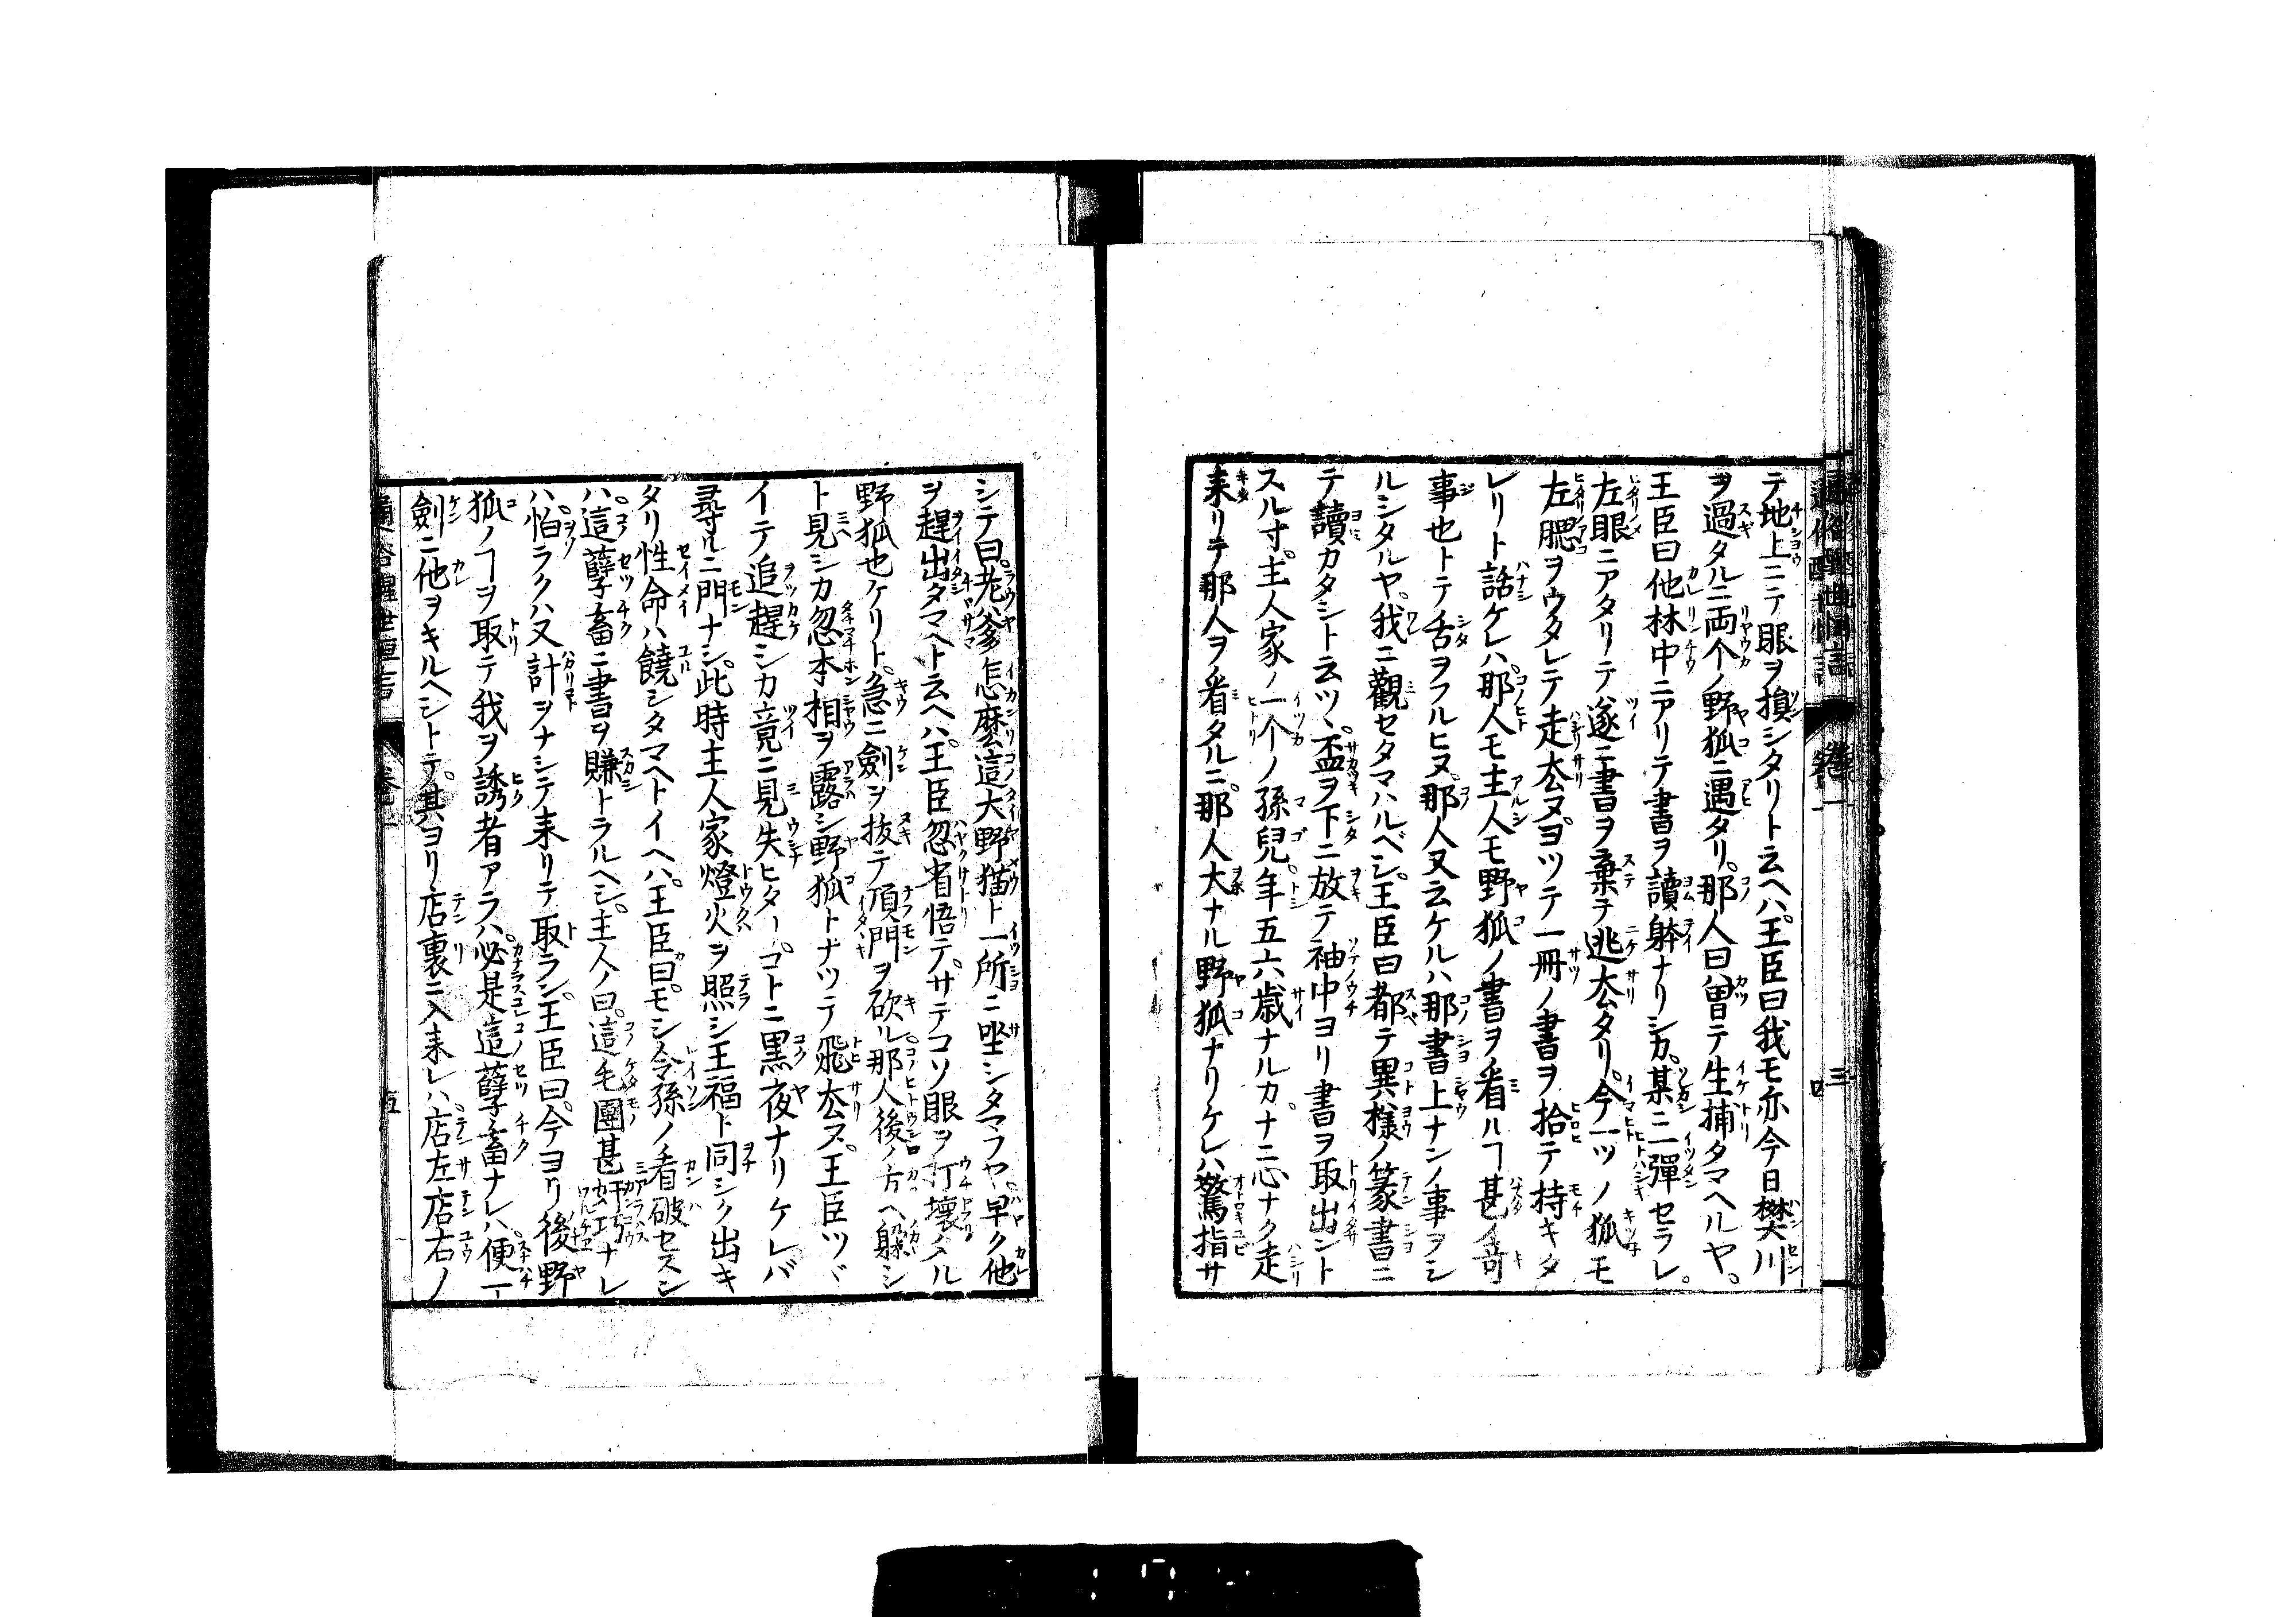 テ地上ニテ眼ヲ損シタリト云ヘハ。王臣曰我モ亦今日樊川
ヲ過タルニ両个ノ野狐ニ遇タリ。那人曰曽テ生捕タマヘルヤ。
王臣曰他林中ニアリテ書ヲ讀躰ナリシカ。某ニ一彈セラレ。
左眼ニアタリテ遂ニ書ヲ棄テ逃去タリ。今一ツノ狐モ
左腮ヲウタレテ走去ヌ。ヨツテ一冊ノ書ヲ拾テ持キタ
レリト話ケレハ。那人モ主人モ野狐ノ書ヲ看ルヿ甚イ竒
事也トテ舌ヲフルヒヌ。那人又云ケルハ那書上ナンノ事ヲシ
ルシタルヤ。我ニ觀セタマハルベシ。王臣曰都テ異様ノ篆書ニ
テ讀カタシト云ツヽ。盃ヲ下ニ放テ袖中ヨリ書ヲ取出ント
スル寸。主人家ノ一个ノ孫兒。年五六歳ナルカ。ナニ心ナク走
来リテ那人ヲ看タルニ。那人大ナル野狐ナリケレハ驚指サ
シテ曰。老爹怎麼這大野猫ト一所ニ坐シタマフヤ。早ク他
ヲ趕出タマヘト云ヘハ。王臣忽省悟テ。サテコソ眼ヲ打壊タル
野狐也ケリト。急ニ劍ヲ抜テ頂門ヲ砍ル。那人後ノ方ヘ躱シ
ト見シカ忽本相ヲ露シ野狐トナツテ飛去ヌ。王臣ツヾ
イテ追趕シカ竟ニ見失ヒタリ。コトニ黒夜ナリケレバ
尋ルニ門ナシ。此時主人家燈火ヲ照シ王福ト同シク出キ
タリ性命ハ饒シタマヘトイヘハ。王臣曰。モシ令孫ノ看破セスン
ハ。這孽畜ニ書ヲ賺トラルヘシ。主人ノ曰。這毛團甚奸巧ナレ
ハ。怕ラクハ又計ヲナシテ来リテ取ラン。王臣曰。今ヨリ後野
狐ノヿヲ取テ我ヲ誘者アラハ。必是這孽畜ナレハ。便一
劍ニ他ヲキルヘシトテ。其ヨリ店裏ニ入来レハ。店左店右ノ
通俗醒世恒言　巻一　五